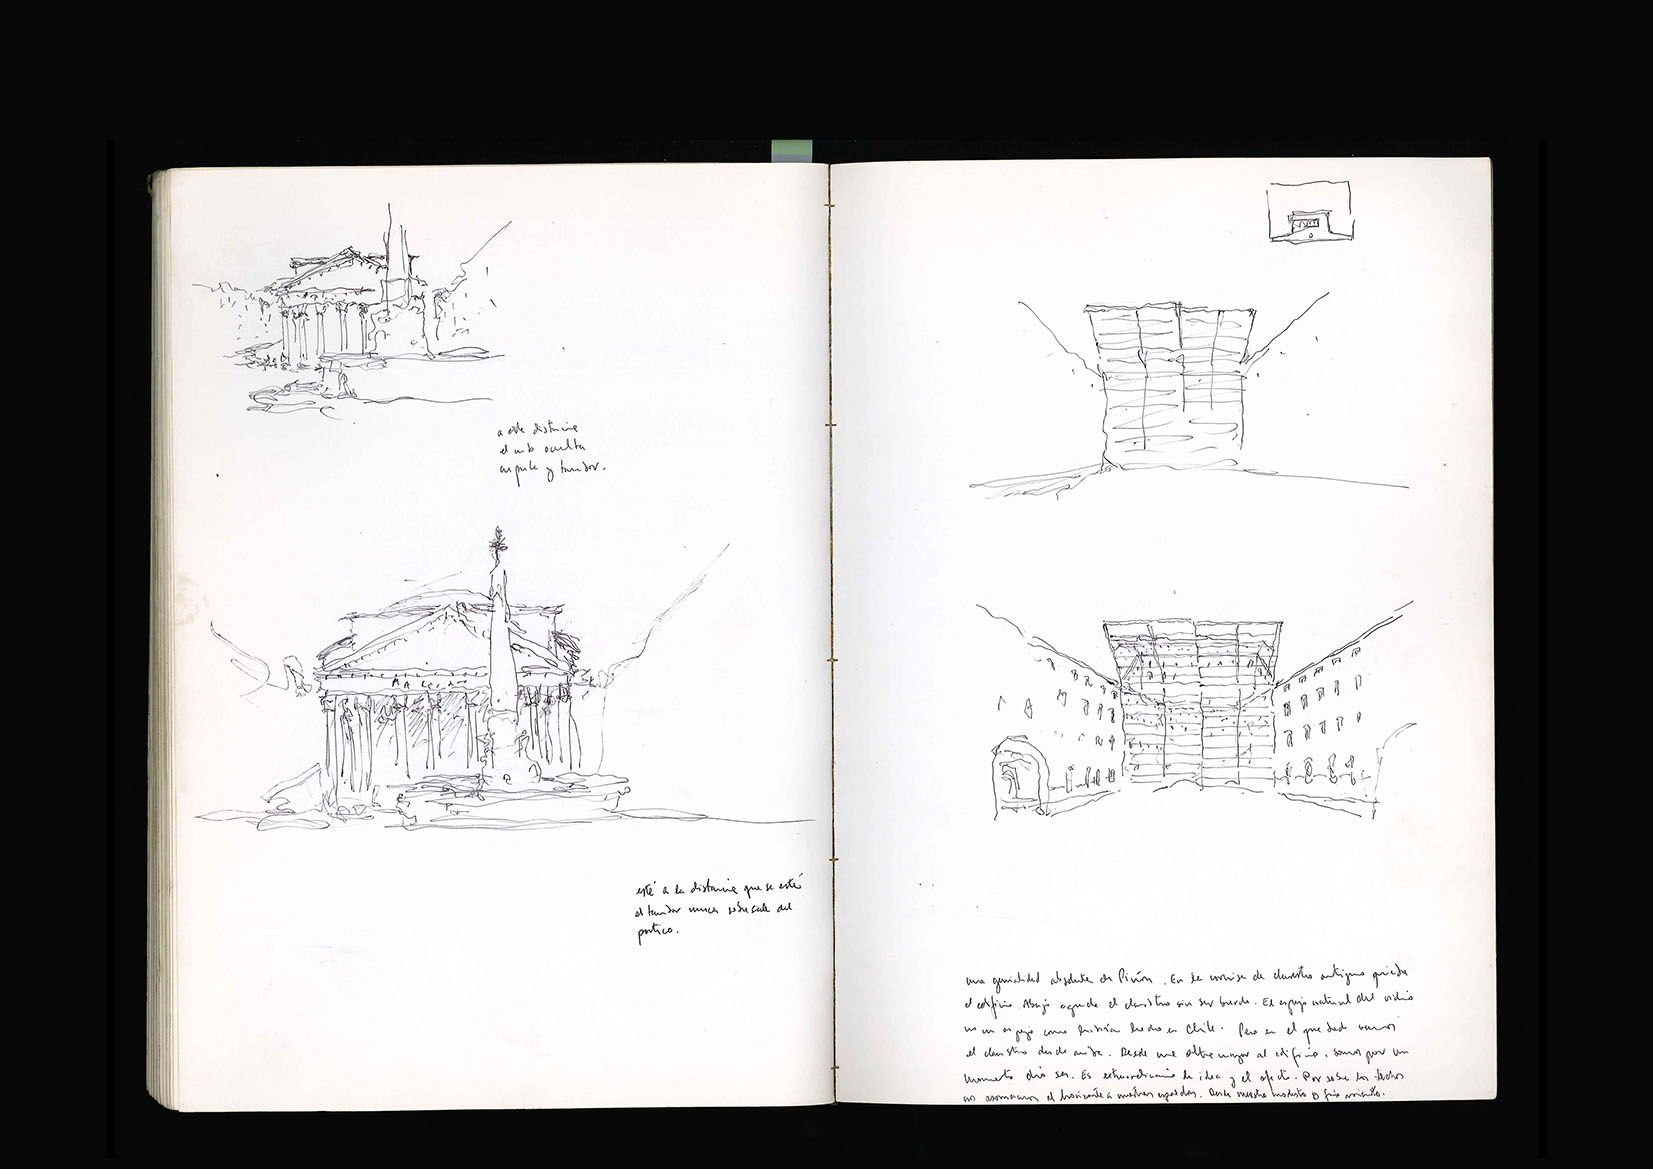 a esta distancia
el oculta
y tambor.
esté a la distancia que se esté
el tambor nunca sobresale del
portico.
una genialidad absoluta de Piñón. En la cornisa de claustro antiguo quiebra
el edificio. Abajo el claustro sin ser burdo. El espejo natural del vidrio
no un espejo como habrían hecho en Chile. Pero en el que vemos
el claustro desde arriba. Desde una altura mayor al edificio, somos por un
momento dios ser. Es extraordinario la idea y el efecto. Por sobre los techos
nos asomamos al horizonte a nuestras espaldas. Desde nuestro modesto y gris